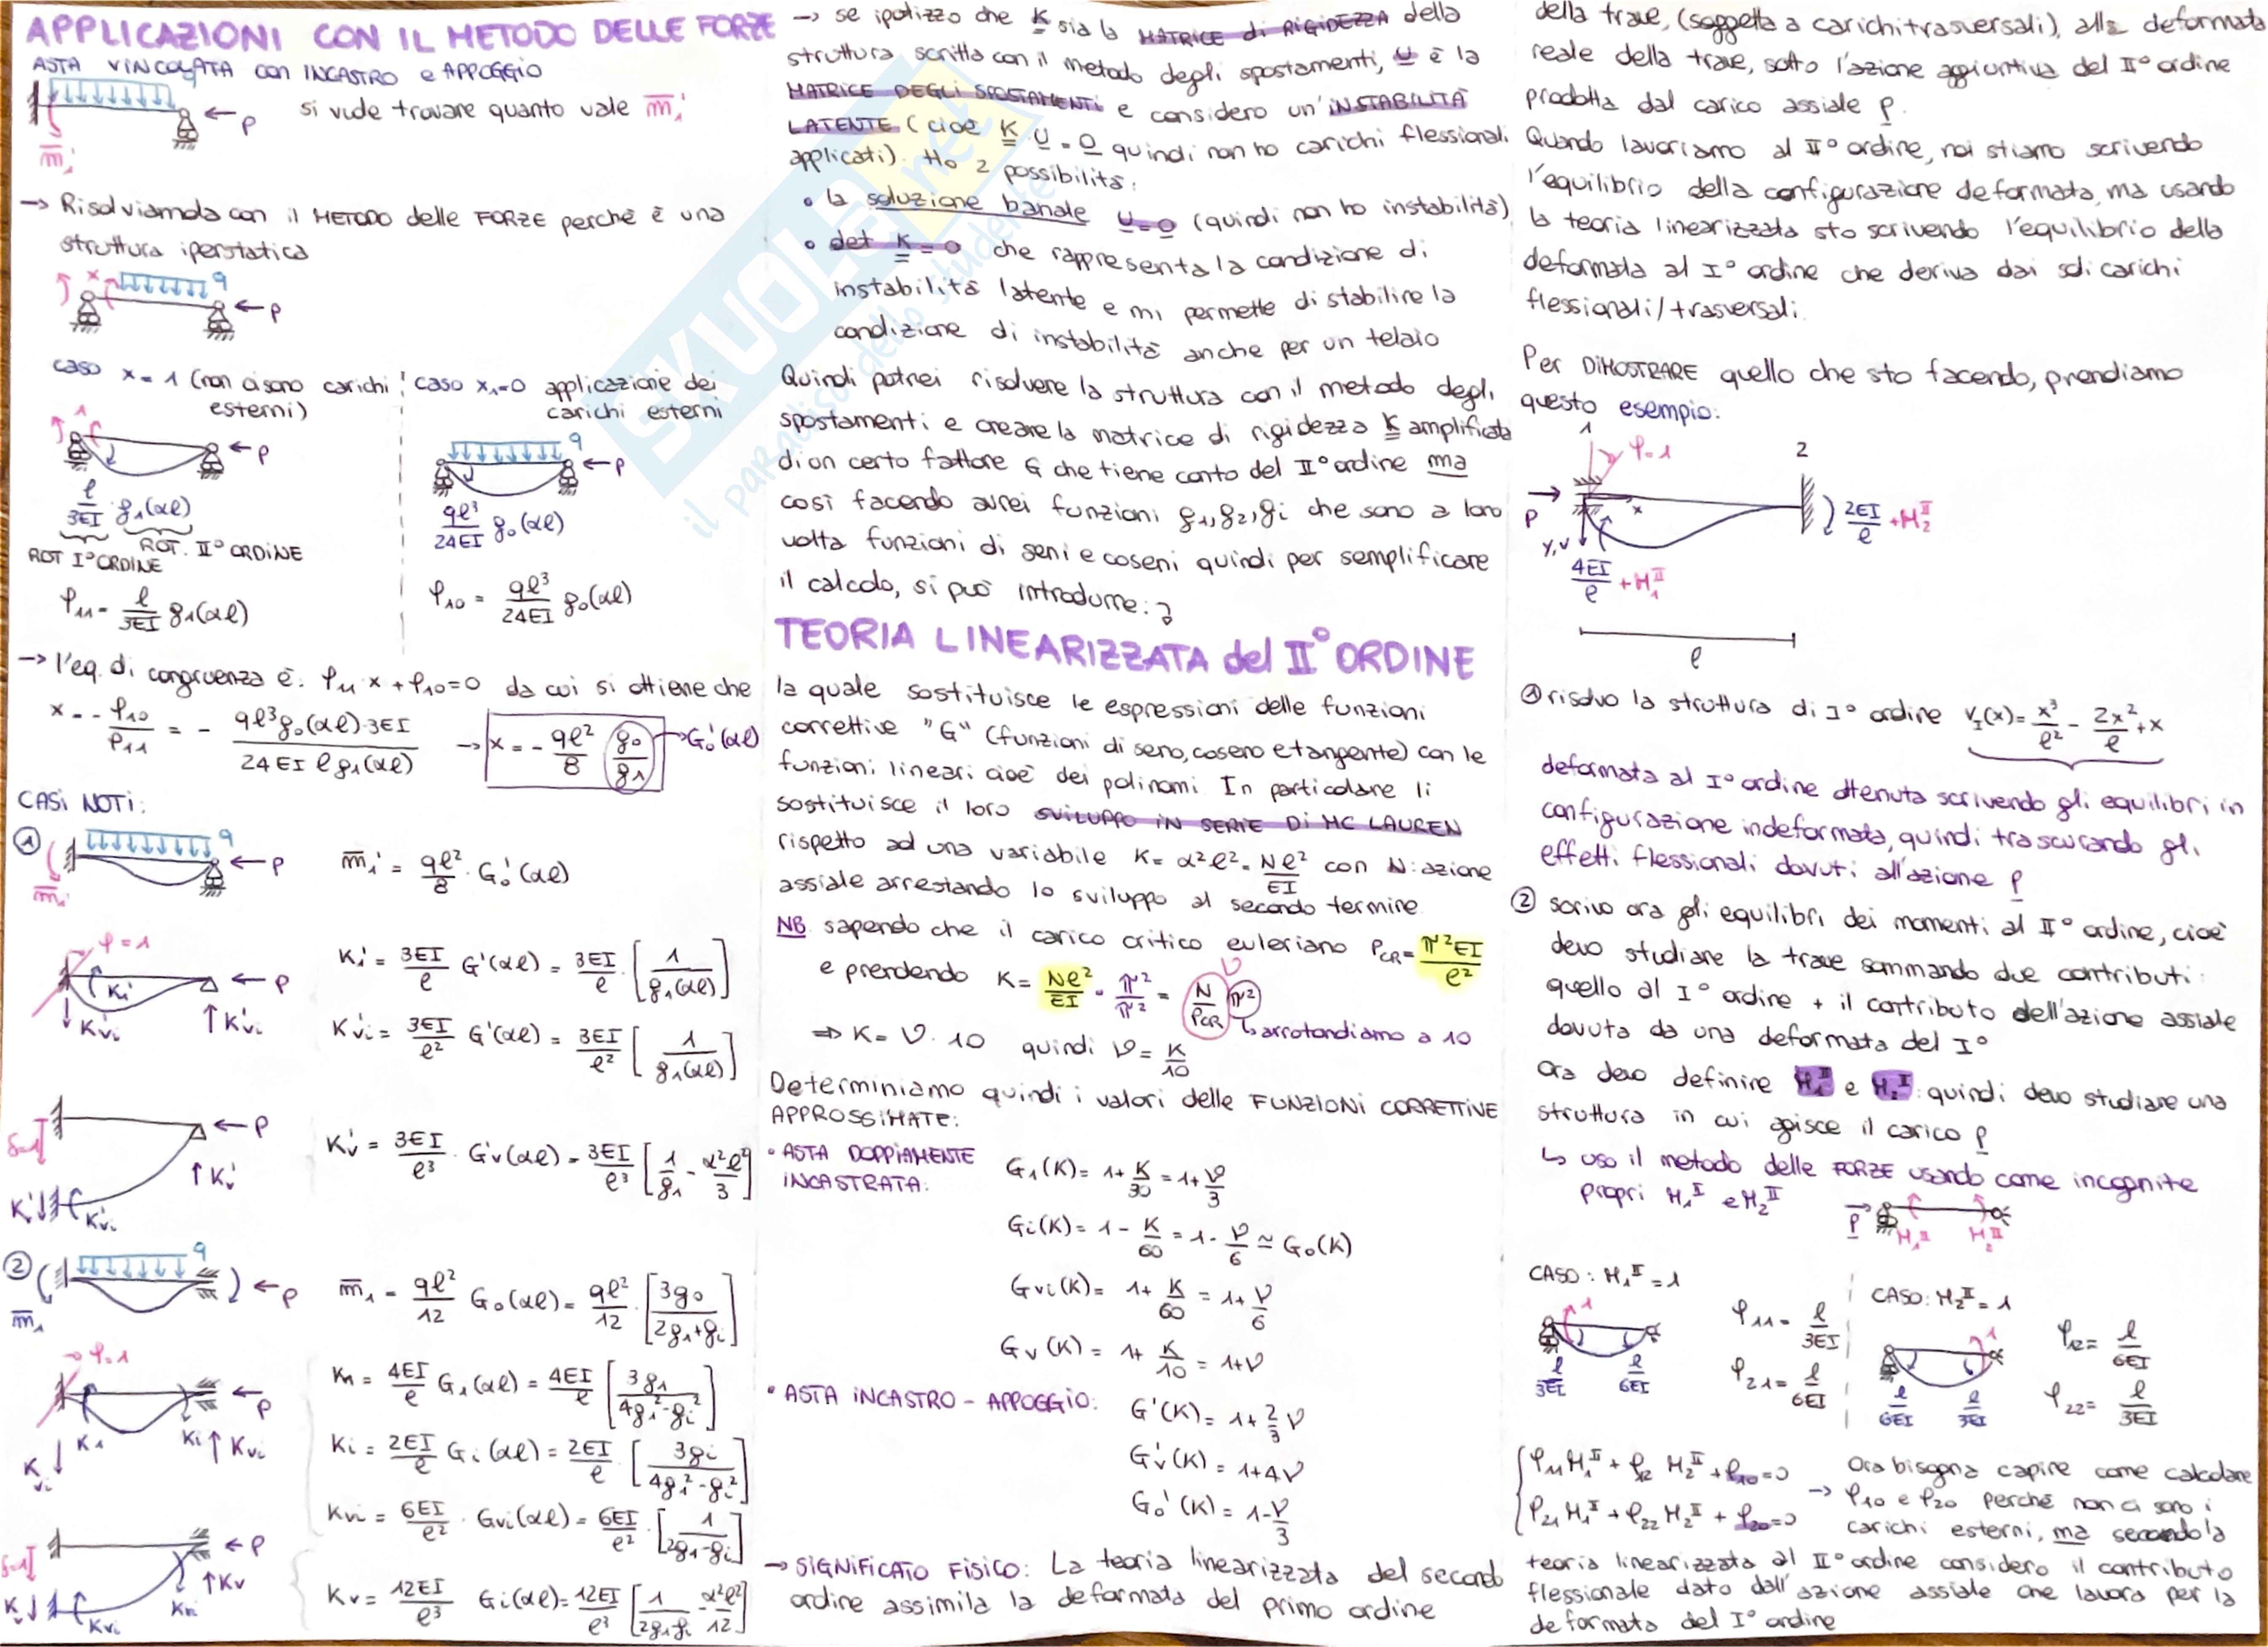 APPLICAZIONI CON IL METODO DELLE FORZE
ASTA VINCOLATA con INCASTRO e APPOGGIO
si vude trovare quanto vale m̅₁'
P
m̅₁'
→ Risolviamola con il METODO delle FORZE perchè è una
struttura iperstatica
x q P
caso x = 1 (non ci sono carichi esterni)
caso x₁=0 applicazione dei carichi esterni
1 P
q P
l/3EI · g₁(αl)
ROT I° ORDINE ROT. II° ORDINE
ql³/24EI g₀(αl)
φ₁₁ = l/3EI g₁(αl)
φ₁₀ = ql³/24EI g₀(αl)
→ l'eq. di congruenza è: φ₁₁ x + φ₁₀ = 0 da cui si ottiene che
x = - φ₁₀/φ₁₁ = - ql³g₀(αl)·3EI / 24EI l g₁(αl) → x = - ql²/8 (g₀/g₁) → G₀'(αl)
CASI NOTI:
① q P m̅₁' m̅₁' = ql²/8 · G₀'(αl)
φ=1 P K₁' Kvi' Kvi'
K₁' = 3EI/l G'(αl) = 3EI/l · [1/g₁(αl)]
Kvi' = 3EI/l² G'(αl) = 3EI/l² [1/g₁(αl)]
δ=1 P Kv' Kv' Kvi'
Kv' = 3EI/l³ · Gv'(αl) = 3EI/l³ [1/g₁ - α²l²/3]
② q P m̅₁ m̅₁ = ql²/12 G₀(αl) = ql²/12 · [3g₀/2g₁+gi]
φ=1 P K₁ Ki Kvi Kvi
K₁ = 4EI/l G₁(αl) = 4EI/l [3g₁/4g₁²-gi²]
Ki = 2EI/l Gi(αl) = 2EI/l [3gi/4g₁²-gi²]
Kvi = 6EI/l² · Gvi(αl) = 6EI/l² · [1/2g₁-gi]
δ=1 P Kv Kv Kvi Kvi
Kv = 12EI/l³ Gi(αl) = 12EI/l³ [1/2g₁-gi - α²l²/12]
→ se ipotizzo che K sia la MATRICE di RIGIDEZZA della
struttura scritta con il metodo degli spostamenti, U è la
MATRICE DEGLI SPOSTAMENTI e considero un'INSTABILITÀ
LATENTE (cioè K U = 0 quindi non ho carichi flessionali
applicati). Ho 2 possibilità:
• la soluzione banale U=0 (quindi non ho instabilità)
• det K = 0 che rappresenta la condizione di
instabilità latente e mi permette di stabilire la
condizione di instabilità anche per un telaio
Quindi potrei risolvere la struttura con il metodo degli
spostamenti e creare la matrice di rigidezza K amplificata
di un certo fattore G che tiene conto del II° ordine ma
così facendo avrei funzioni g₁, g₂, gi che sono a loro
volta funzioni di seni e coseni quindi per semplificare
il calcolo, si può introdurre:
TEORIA LINEARIZZATA del II° ORDINE
la quale sostituisce le espressioni delle funzioni
correttive "G" (funzioni di seno, coseno e tangente) con le
funzioni lineari cioè dei polinomi. In particolare li
sostituisce il loro SVILUPPO IN SERIE DI MC LAUREN
rispetto ad una variabile K = α²l² = Nl²/EI con N: azione
assiale arrestando lo sviluppo al secondo termine
NB sapendo che il carico critico euleriano PCR = π²EI/l²
e prendendo K = Nl²/EI · π²/π² = N/PCR π²
ν
↳ arrotondiamo a 10
⇒ K = ν · 10 quindi ν = K/10
Determiniamo quindi i valori delle FUNZIONI CORRETTIVE
APPROSSIMATE:
• ASTA DOPPIAMENTE INCASTRATA:
G₁(K) = 1 + K/30 = 1 + ν/3
Gi(K) = 1 - K/60 = 1 - ν/6 ≃ G₀(K)
Gvi(K) = 1 + K/60 = 1 + ν/6
Gv(K) = 1 + K/10 = 1 + ν
• ASTA INCASTRO - APPOGGIO:
G'(K) = 1 + 2/3 ν
Gv'(K) = 1 + 4ν
G₀'(K) = 1 - ν/3
→ SIGNIFICATO FISICO: La teoria linearizzata del secondo
ordine assimila la deformata del primo ordine
della trave, (soggetta a carichi trasversali), alla deformata
reale della trave, sotto l'azione aggiuntiva del II° ordine
prodotta dal carico assiale P.
Quando lavoriamo al II° ordine, noi stiamo scrivendo
l'equilibrio della configurazione deformata, ma usando
la teoria linearizzata sto scrivendo l'equilibrio della
deformata al I° ordine che deriva dai soli carichi
flessionali/trasversali.
Per DIMOSTRARE quello che sto facendo, prendiamo
questo esempio:
1 φ=1 2
P x y,v
2EI/l + M₂ᴵᴵ
4EI/l + M₁ᴵᴵ
l
① risolvo la struttura di I° ordine vI(x) = x³/l² - 2x²/l + x
deformata al I° ordine ottenuta scrivendo gli equilibri in
configurazione indeformata, quindi trascurando gli
effetti flessionali dovuti all'azione P
② scrivo ora gli equilibri dei momenti al II° ordine, cioè
devo studiare la trave sommando due contributi:
quello al I° ordine + il contributo dell'azione assiale
dovuta da una deformata del I°
Ora devo definire M₁ᴵᴵ e M₂ᴵᴵ: quindi devo studiare una
struttura in cui agisce il carico P
↳ uso il metodo delle FORZE usando come incognite
propri M₁ᴵᴵ e M₂ᴵᴵ
P M₁ᴵᴵ M₂ᴵᴵ
CASO: M₁ᴵᴵ = 1
CASO: M₂ᴵᴵ = 1
1 l/3EI l/6EI
φ₁₁ = l/3EI
φ₂₁ = l/6EI
1 l/6EI l/3EI
φ₁₂ = l/6EI
φ₂₂ = l/3EI
φ₁₁ M₁ᴵᴵ + φ₁₂ M₂ᴵᴵ + φ₁₀ = 0
φ₂₁ M₁ᴵᴵ + φ₂₂ M₂ᴵᴵ + φ₂₀ = 0
→ Ora bisogna capire come calcolare
φ₁₀ e φ₂₀ perchè non ci sono i
carichi esterni, ma secondo la
teoria linearizzata al II° ordine considero il contributo
flessionale dato dall'azione assiale che lavora per la
deformata del I° ordine
SKUOLA.net
il paradiso dello studente